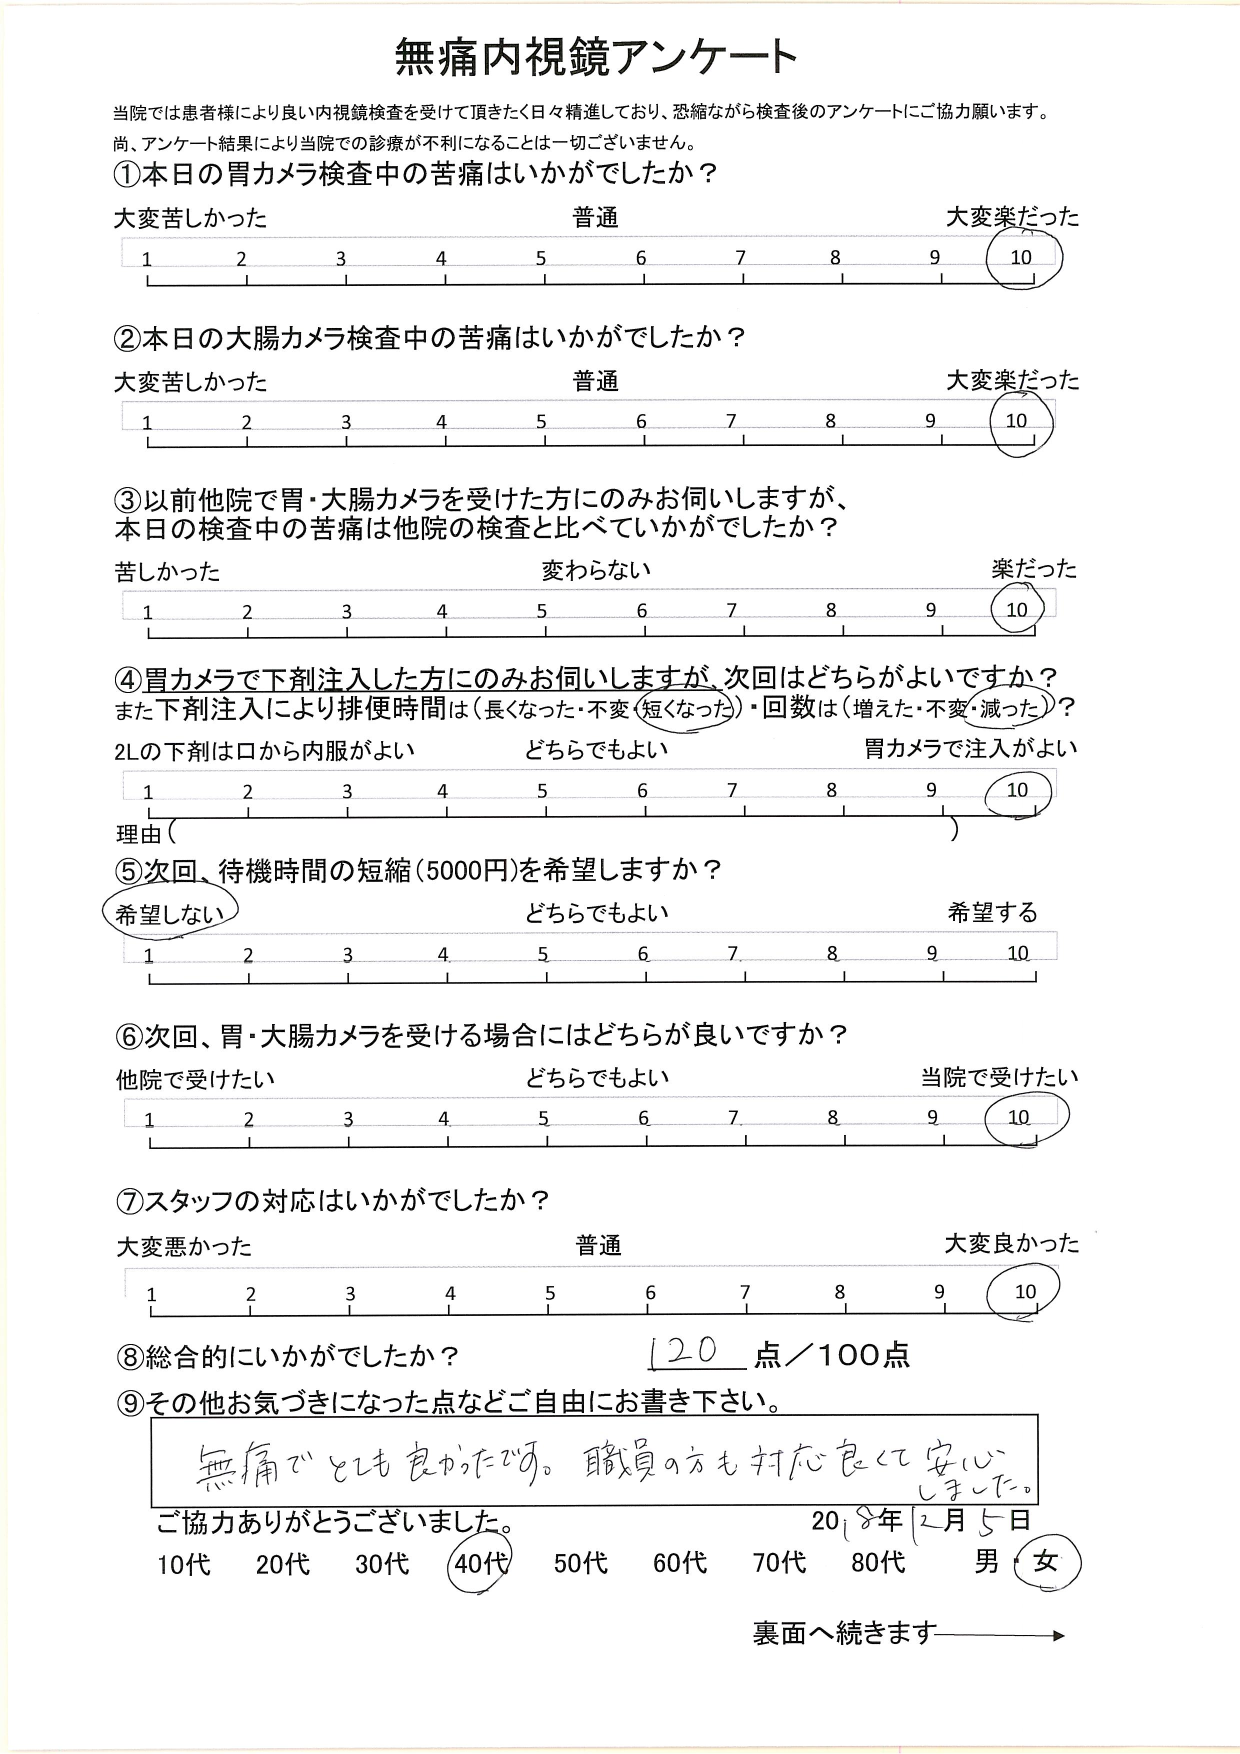 無痛内視鏡アンケート
当院では患者様により良い内視鏡検査を受けて頂きたく日々精進しており、恐縮ながら検査後のアンケートにご協力願います。
尚、アンケート結果により当院での診療が不利になることは一切ございません。
①本日の胃カメラ検査中の苦痛はいかがでしたか？
大変苦しかった 普通 大変楽だった
1 2 3 4 5 6 7 8 9 10
②本日の大腸カメラ検査中の苦痛はいかがでしたか？
大変苦しかった 普通 大変楽だった
1 2 3 4 5 6 7 8 9 10
③以前他院で胃・大腸カメラを受けた方にのみお伺いしますが、
本日の検査中の苦痛は他院の検査と比べていかがでしたか？
苦しかった 変わらない 楽だった
1 2 3 4 5 6 7 8 9 10
④胃カメラで下剤注入した方にのみお伺いしますが、次回はどちらがよいですか？
また下剤注入により排便時間は（長くなった・不変・短くなった）・回数は（増えた・不変・減った）？
2Lの下剤は口から内服がよい どちらでもよい 胃カメラで注入がよい
1 2 3 4 5 6 7 8 9 10
理由（ ）
⑤次回、待機時間の短縮（5000円）を希望しますか？
希望しない どちらでもよい 希望する
1 2 3 4 5 6 7 8 9 10
⑥次回、胃・大腸カメラを受ける場合にはどちらが良いですか？
他院で受けたい どちらでもよい 当院で受けたい
1 2 3 4 5 6 7 8 9 10
⑦スタッフの対応はいかがでしたか？
大変悪かった 普通 大変良かった
1 2 3 4 5 6 7 8 9 10
⑧総合的にいかがでしたか？ 120 点／100点
⑨その他お気づきになった点などご自由にお書き下さい。
無痛でとても良かったです。職員の方も対応良くて安心
しました。
ご協力ありがとうございました。 2018年12月5日
10代 20代 30代 40代 50代 60代 70代 80代 男・女
裏面へ続きます